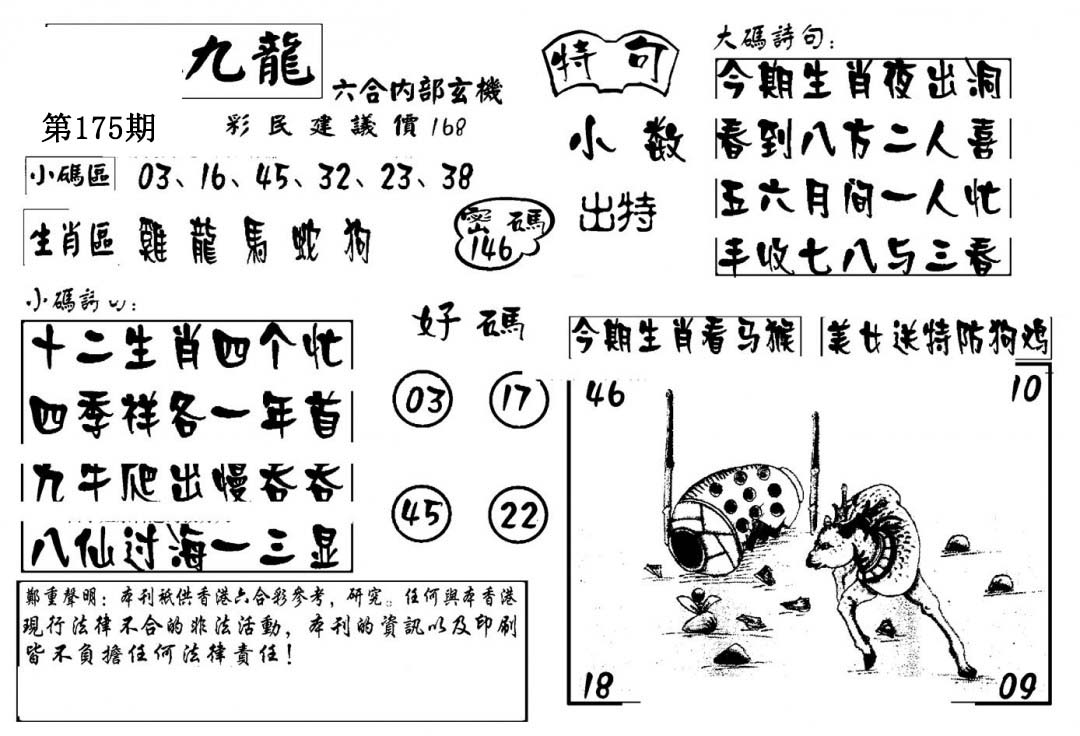 九龍
六合内部玄機
第175期
彩民建議價168
小碼區 03、16、45、32、23、38
生肖區 雞龍馬蛇狗
密碼
146
特句
小数
出特
大碼詩句：
今期生肖夜出洞
看到八方二人喜
五六月间一人忙
丰收七八与三春
小碼詩句：
十二生肖四个忙
四季祥各一年首
九牛爬出慢吞吞
八仙过海一三显
好碼
03 17
45 22
今期生肖看马猴
美女送特防狗鸡
46 10
18 09
鄭重聲明：本刊祇供香港六合彩參考，研究。任何與本香港
現行法律不合的非法活動，本刊的資訊以及印刷
皆不負擔任何法律責任！